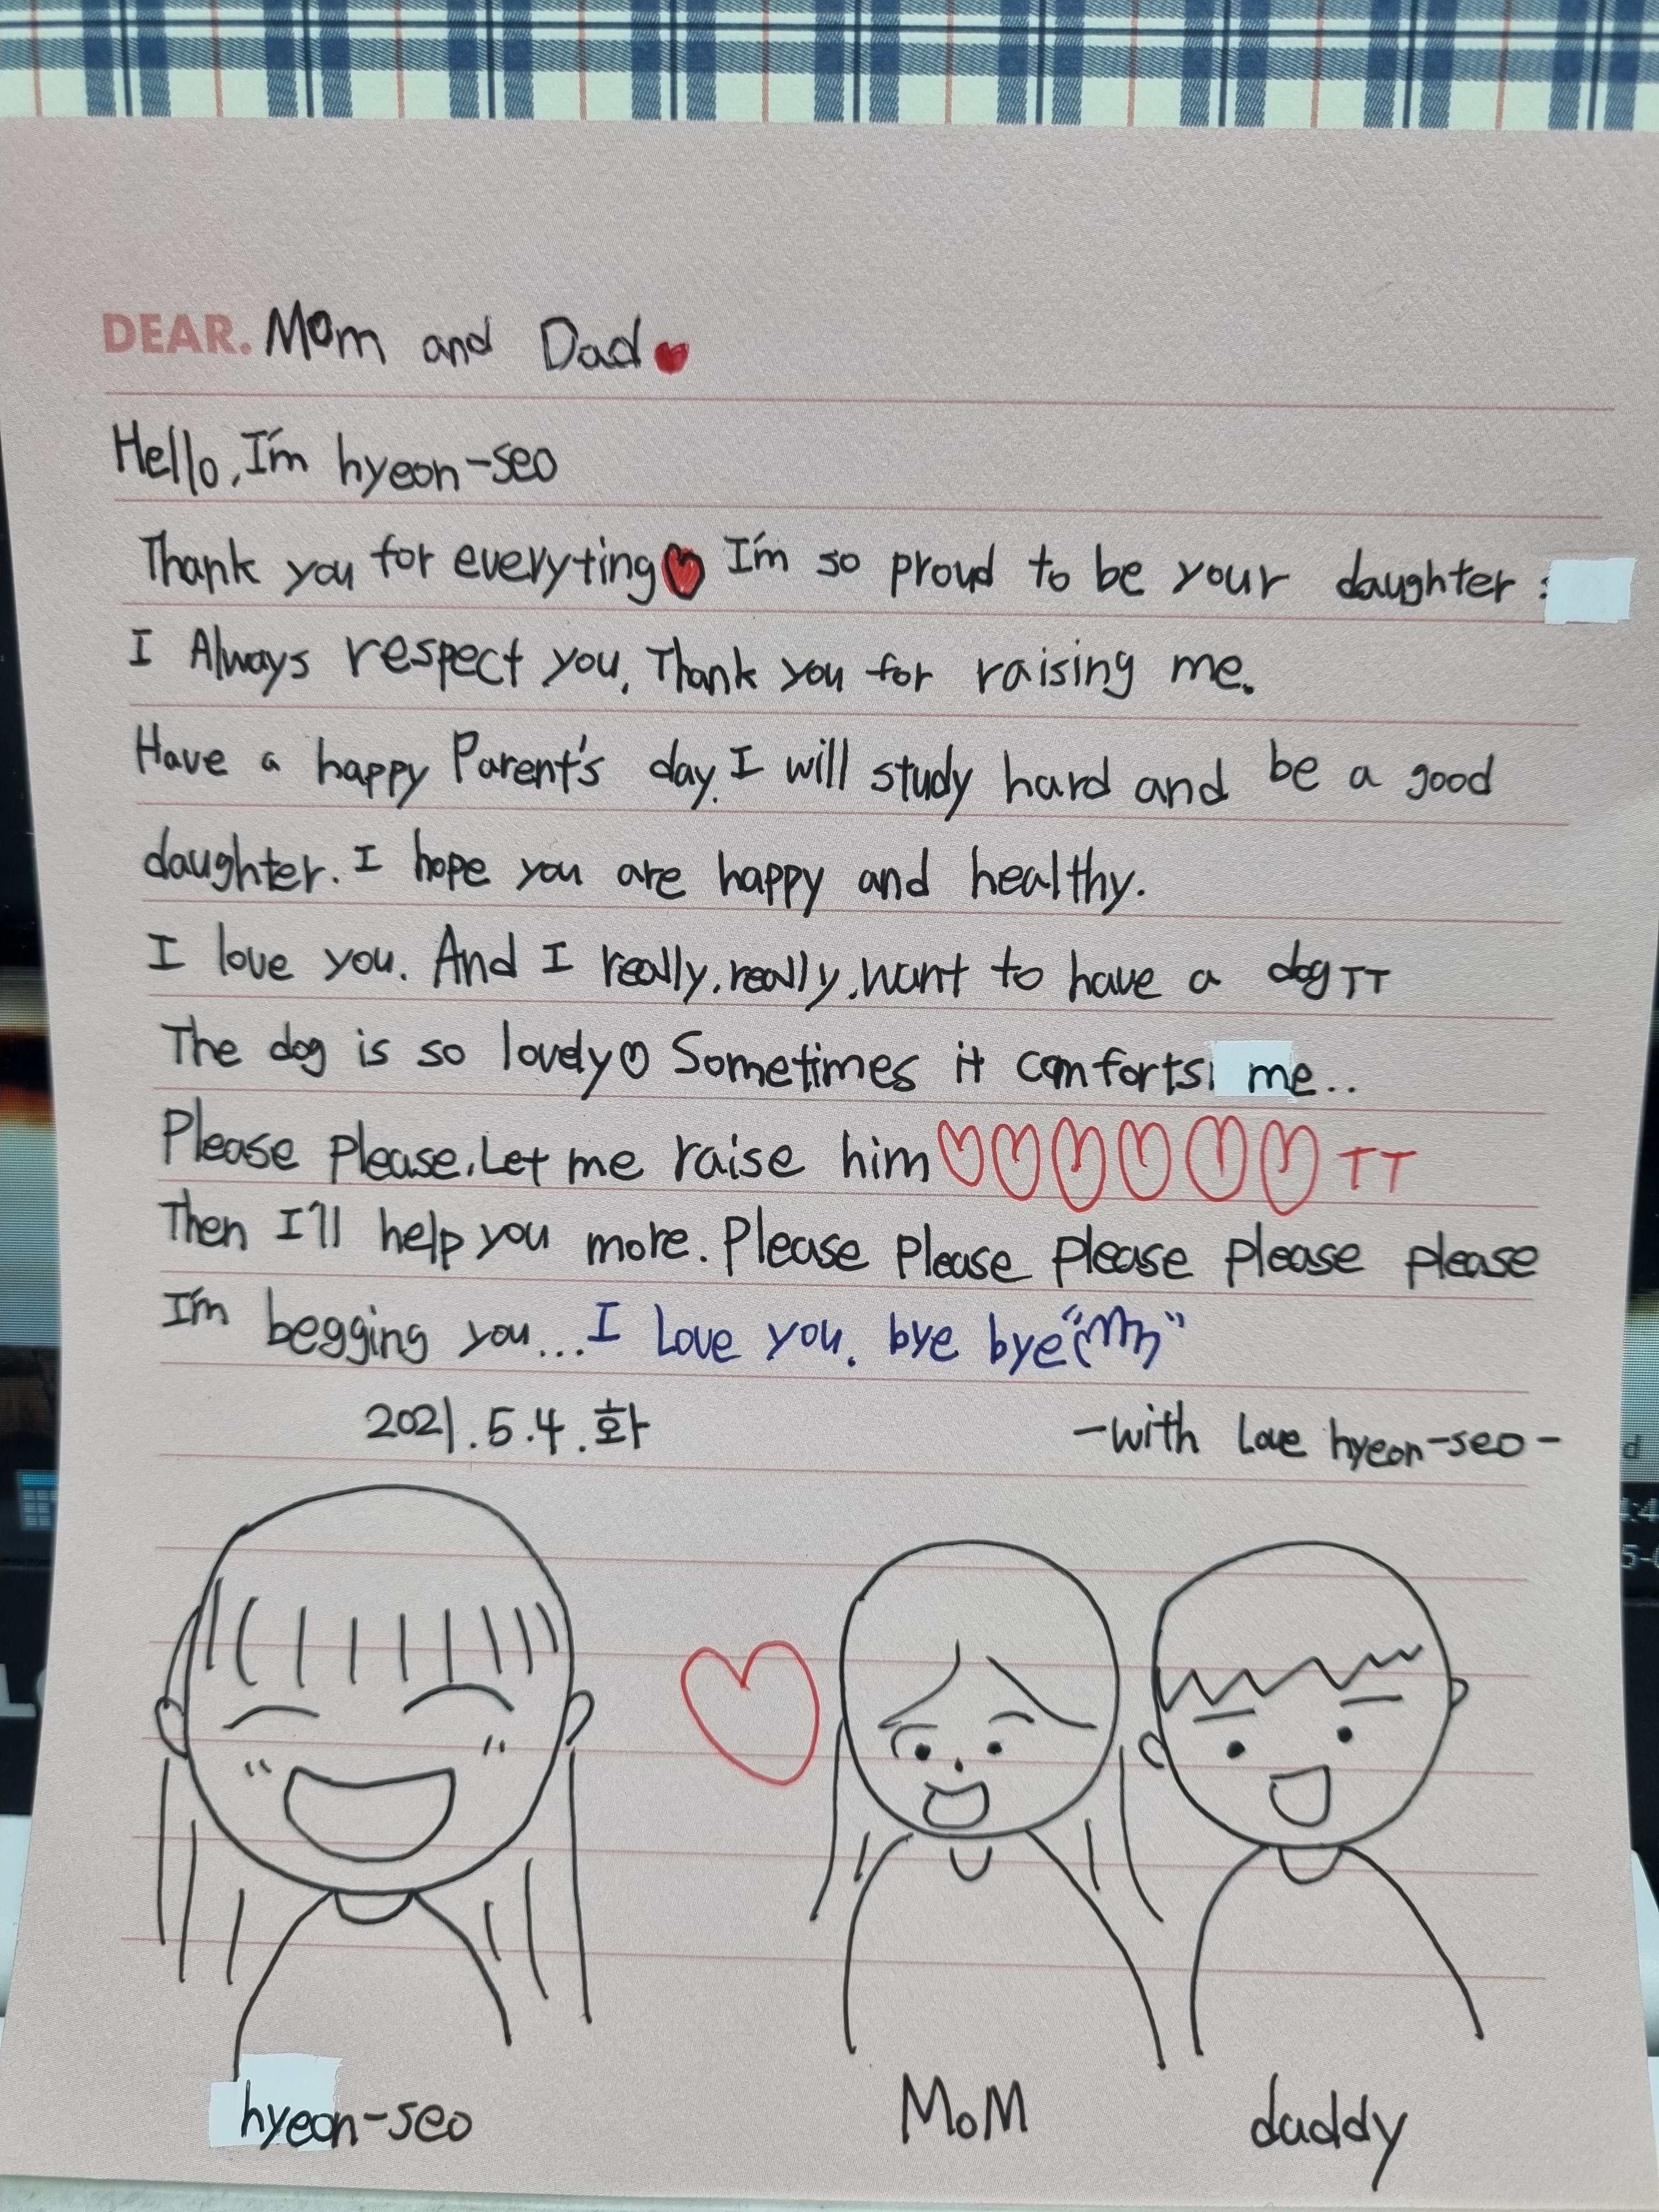 DEAR. Mom and Dad♥
Hello, I'm hyeon-seo
Thank you for everyting♥ I'm so proud to be your daughter :
I Always respect you, Thank you for raising me.
Have a happy Parent's day. I will study hard and be a good
daughter. I hope you are happy and healthy.
I love you. And I really, really, want to have a dog TT
The dog is so lovely♡ Sometimes it comforts me..
Please please, Let me raise him♡♡♡♡♡♡ TT
Then I'll help you more. Please please please please please
I'm begging you... I Love you. bye bye
2021.5.4.화
-with Love hyeon-seo-
hyeon-seo
MoM
daddy